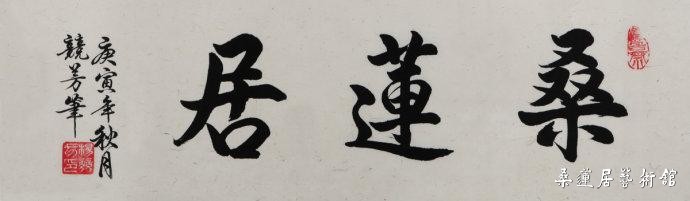 桑蓮居
庚寅年秋月
競芳筆
桑蓮居藝術館